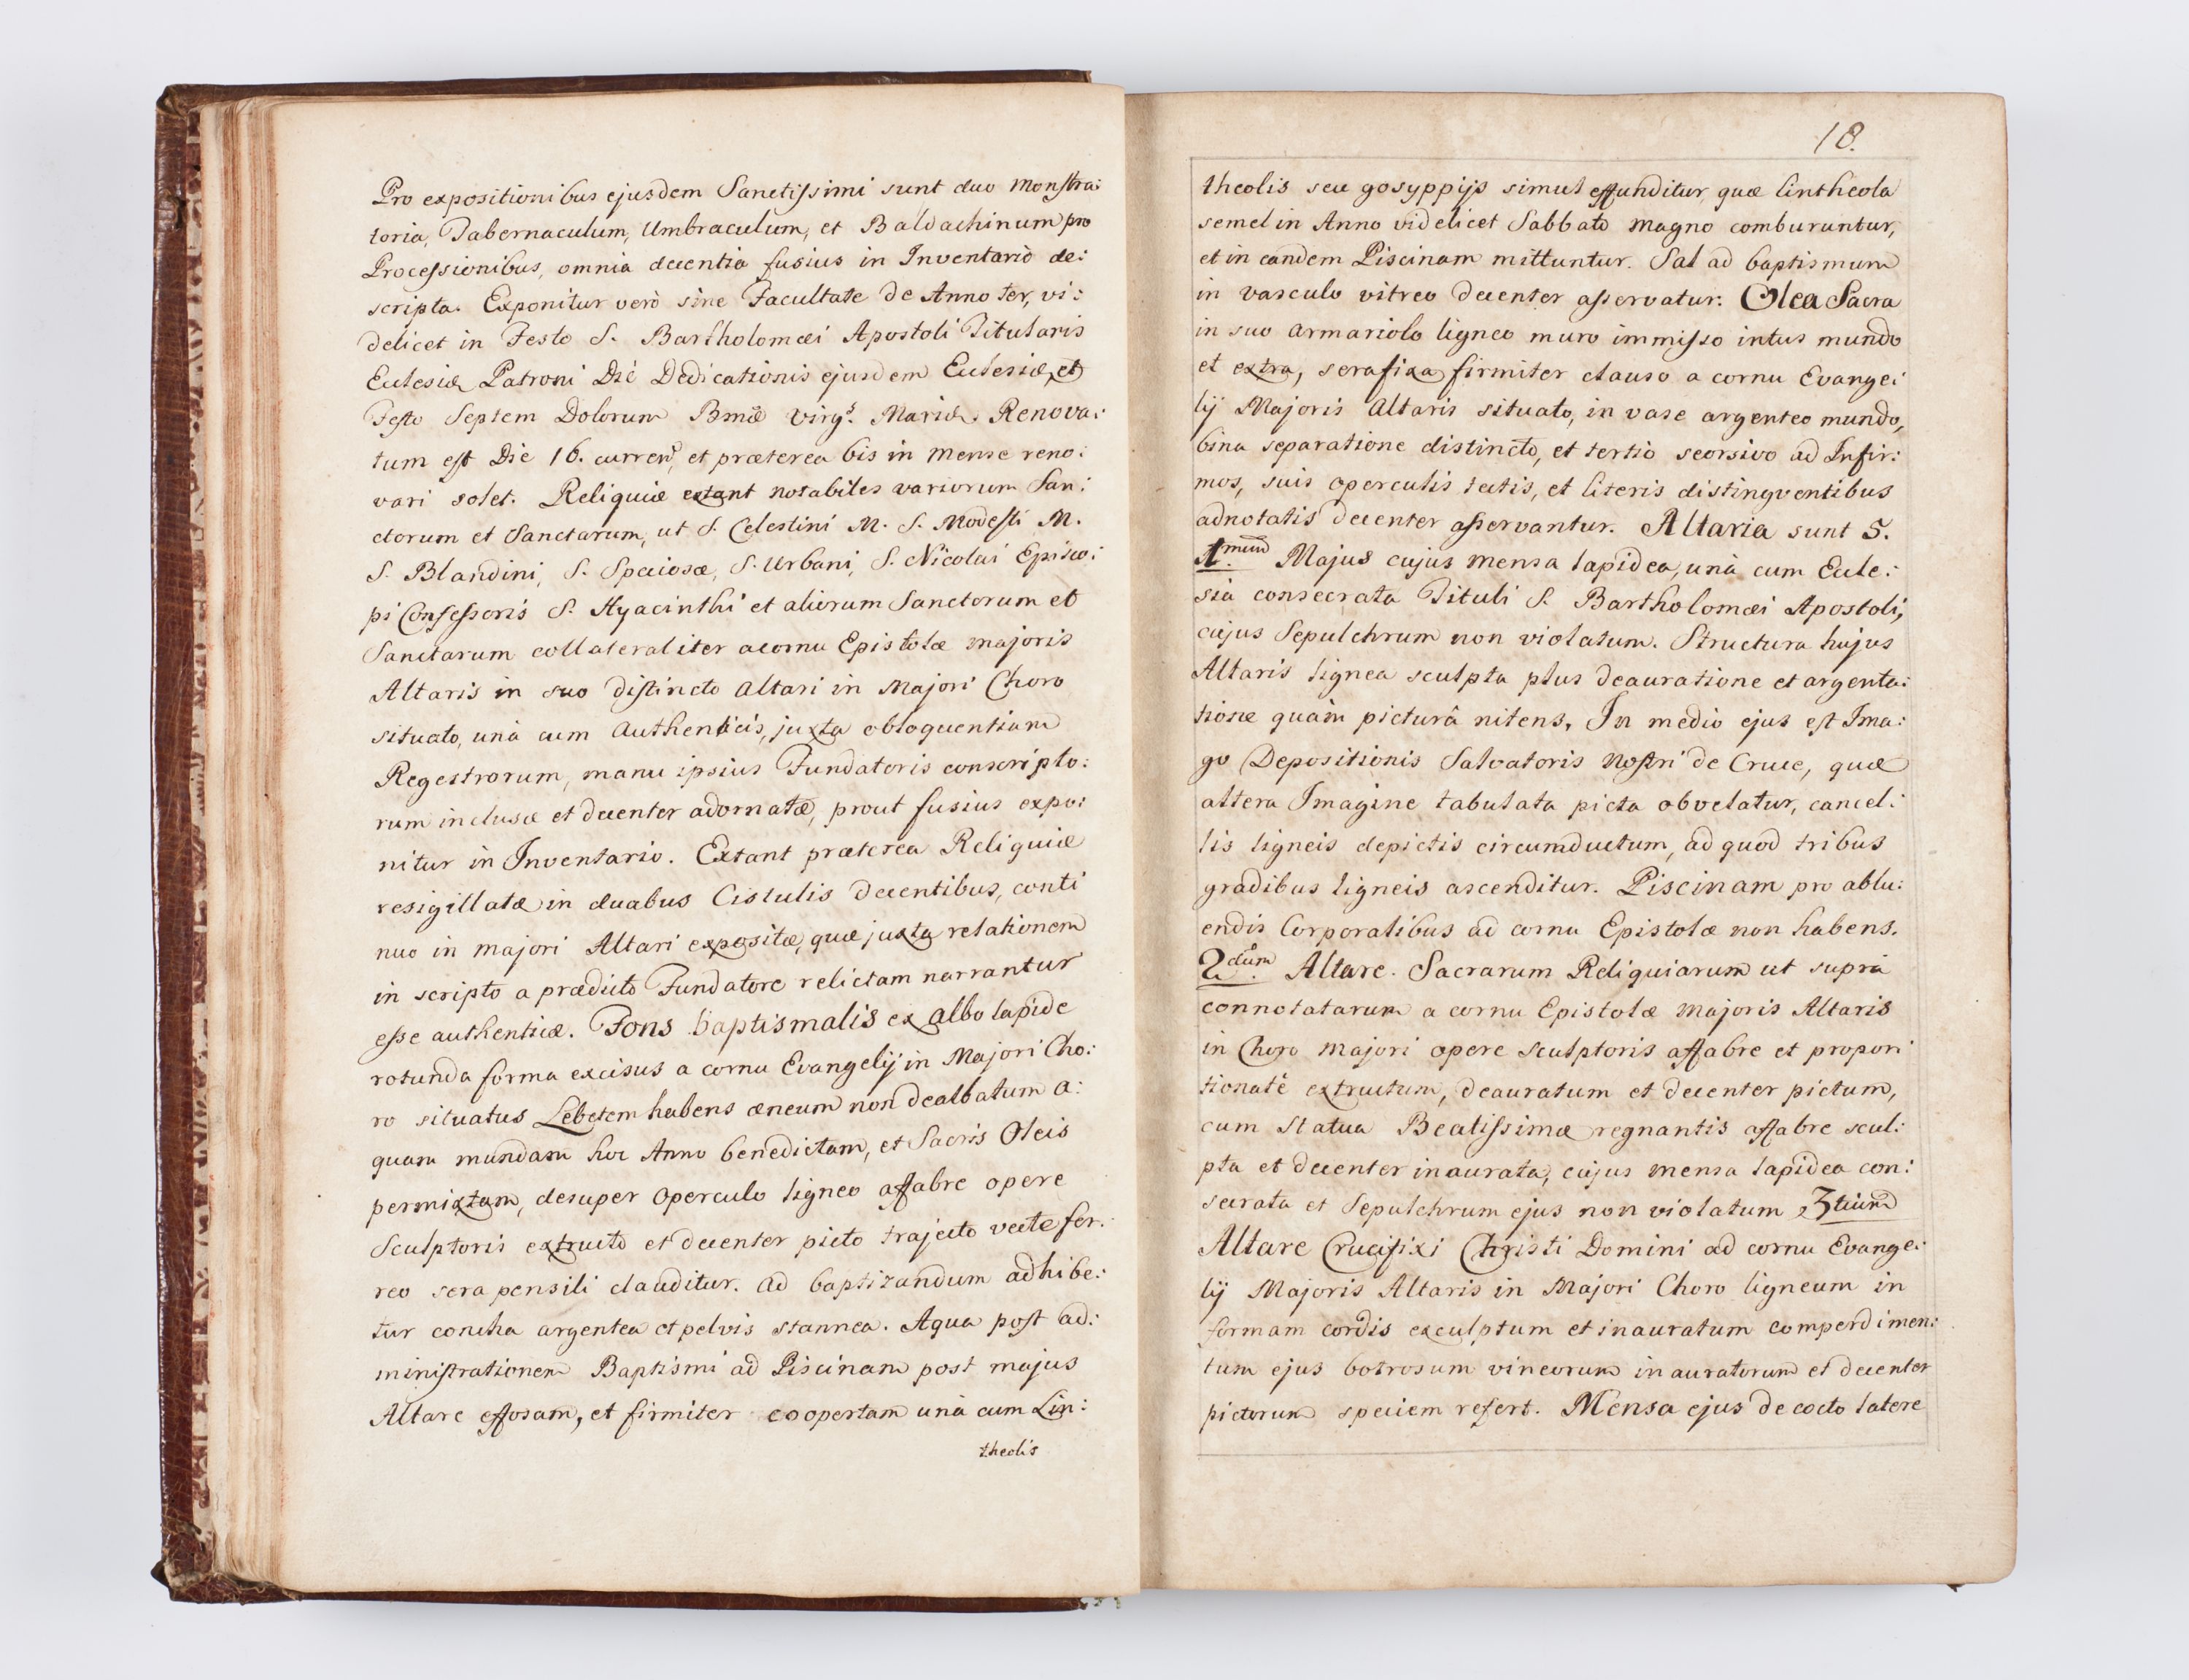 Pro expositionibus ejusdem Sanctissimi sunt duo Monstra:
toria, Tabernaculum, Umbraculum, et Baldachinum pro
Processionibus, omnia decentia fusius in Inventario de:
scripta. Exponitur verò sine Facultate de Anno ter, vi:
delicet in Festo S. Bartholomæi Apostoli Titularis
Eclesiæ Patroni Die Dedicationis ejusdem Eclesiæ, et
Festo Septem Dolorum Bmæ Virgs. Mariæ. Renova:
tum est Die 16. curren, et præterea bis in Mense reno:
vari solet. Reliquiæ extant notabiles variorum San:
ctorum et Sanctarum, ut S. Celestini M. S. Modesti M.
S. Blandini, S. Speciosæ, S. Urbani, S. Nicolai Episco:
pi Confessoris S. Hyacinthi et aliorum Sanctorum et
Sanctarum collateraliter a cornu Epistolæ majoris
Altaris in suo distincto Altari in Majori Choro
situato, unà cum Authenticis, juxta obloquentiam
Regestrorum, manu ipsius Fundatoris conscripto:
rum inclusæ et decenter adornatæ, prout fusius expo:
nitur in Inventario. Extant præterea Reliquiæ
resigillatæ in duabus Cistulis decentibus, conti
nuo in majori Altari expositæ, quæ juxta relationem
in scripto a prædicto Fundatore relictam narrantur
esse authenticæ. Fons baptismalis ex albo lapide
rotunda forma excisus a cornu Evangelij in Majori Cho:
ro situatus Lebetem habens æneum non dealbatum a:
quam mundam hoc Anno benedictam, et Sacris Oleis
permixtam, desuper operculo ligneo affabre opere
Sculptoris extructo et decenter picto trajecto vecte fer:
reo sera pensili clauditur. Ad baptizandum adhibe:
tur concha argentea et pelvis stannea. Aqua post ad:
ministrationem Baptismi ad Piscinam post majus
Altare effosam, et firmiter coopertam unà cum Lin:
theolis
18.
theolis seu gosyppijs simul effunditur, quæ lintheola
semel in Anno videlicet Sabbato Magno comburuntur,
et in eandem Piscinam mittuntur. Sal ad baptismum
in vasculo vitreo decenter asservatur: Olea Sacra
in suo armariolo ligneo muro immisso intus mundo
et extra, sera fixa firmiter clauso a cornu Evange:
lij Majoris Altaris situato, in vase argenteo mundo,
bina separatione distincto, et tertio seorsivo ad Infir:
mos, suis operculis tectis, et literis distingventibus
adnotatis decenter asservantur. Altaria sunt 5.
1mum Majus cujus mensa lapidea, unà cum Ecle:
sia consecrata Tituli S. Bartholomæi Apostoli,
cujus Sepulchrum non violatum. Structura hujus
Altaris lignea sculpta plus deauratione et argenta:
tione quàm picturâ nitens, In medio ejus est Ima:
go Depositionis Salvatoris Nostri de Cruce, quæ
altera Imagine tabulata picta obvelatur, cancel:
lis ligneis depictis circumductum, ad quod tribus
gradibus ligneis ascenditur. Piscinam pro ablu:
endis Corporalibus ad cornu Epistolæ non habens.
2dum. Altare. Sacrarum Reliquiarum ut suprà
connotatarum a cornu Epistolæ Majoris Altaris
in Choro majori opere sculptoris affabre et propor:
tionatè extructum, deauratum et decenter pictum,
cum Statua Beatissimæ regnantis affabre scul:
pta et decenter inaurata, cujus mensa lapidea con:
secrata et Sepulchrum ejus non violatum, 3tium
Altare Crucifixi Christi Domini ad cornu Evange:
lij Majoris Altaris in Majori Choro ligneum in
formam cordis exculptum et inauratum comperdimen:
tum ejus botrosum vineorum inauratorum et decenter
pictorum speciem refert. Mensa ejus de cocto latere